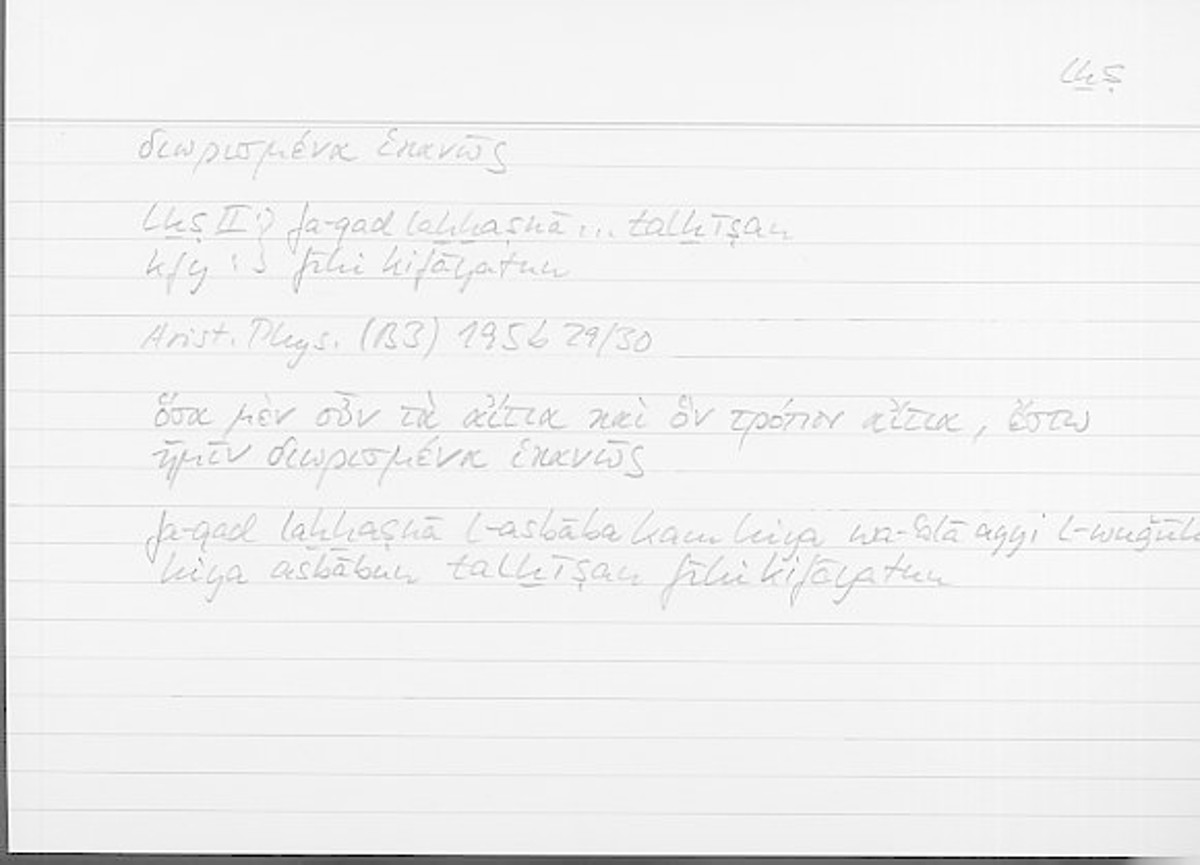 lḫṣ
διωρισμένα ἱκανῶς
lḫṣ II :} fa-qad laḫḫaṣnā ... talḫīṣan
kfy :} fīhi kifāyatun
Arist. Phys. (B3) 195b 29/30
ὅσα μὲν οὖν τὰ αἴτια καὶ ὃν τρόπον αἴτια, ἔστω
ἡμῖν διωρισμένα ἱκανῶς
fa-qad laḫḫaṣnā l-asbāba kam hiya wa-ʿalā ayyi l-wuǧūh
hiya asbābun talḫīṣan fīhi kifāyatun